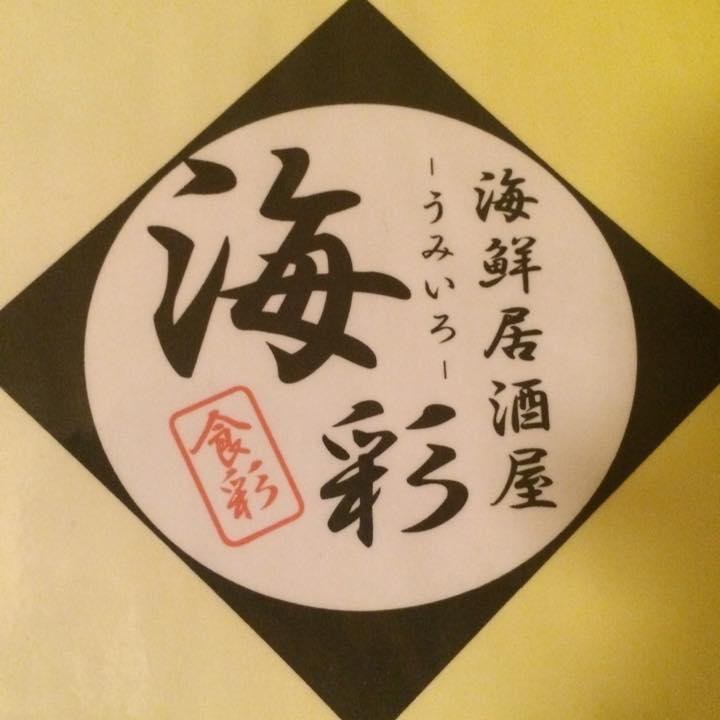 海鮮居酒屋
-うみいろ-
海彩
食彩